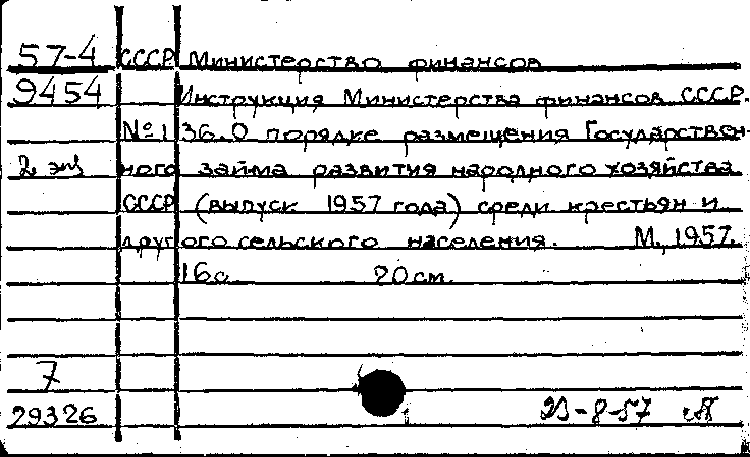 57-4 СССР Министерство финансов
9454 Инструкция Министерства финансов СССР.
№136. О порядке размещения Государствен-
2 экз ного займа развития народного хозяйства
СССР (выпуск 1957 года) среди крестьян и
другого сельского населения. М., 1957.
16с 20 см.
7
29326 23-8-57